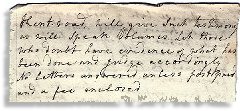 Phent road will give Such testimony
as will Speak Volumes. Let those
who doubt have evidence of what has
been done and judge accordingly
No Letters answered unless postpaid
and a fee enclosed